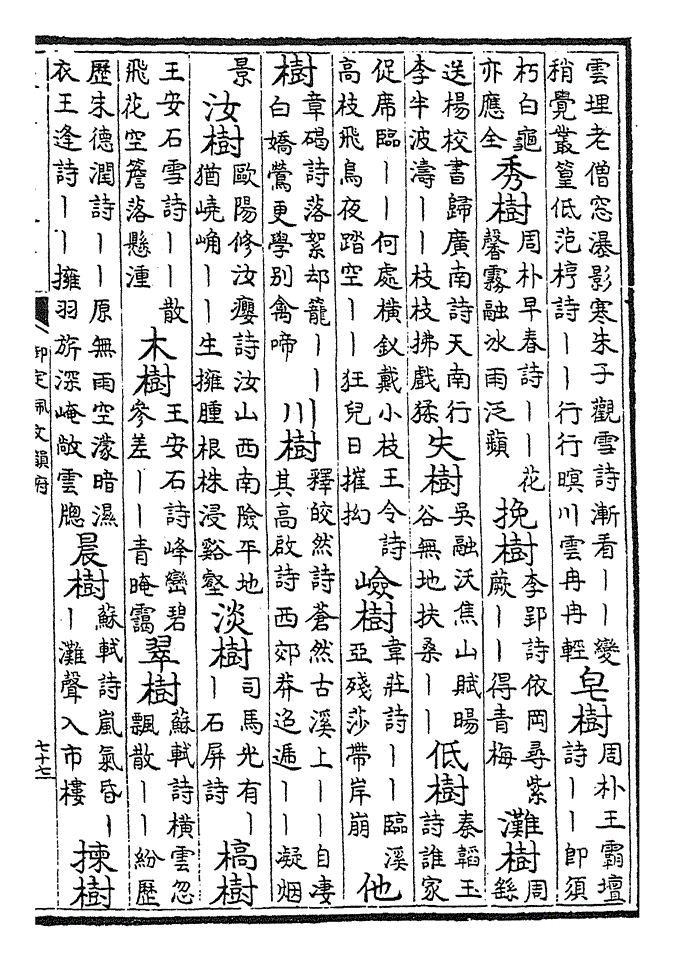 雲埋老僧窓瀑影寒朱子觀雪詩漸看丨丨變稍覺叢篁低范梈詩丨丨行行暝川雲冉冉輕皂樹周朴王霸壇詩丨丨即須
朽白龜亦應全秀樹周朴早春詩丨丨花馨霧融冰雨泛蘋挽樹李郢詩依岡尋紫蕨丨丨得青梅灘樹周繇
送楊校書歸廣南詩天南行李半波濤丨丨枝枝拂戲猱失樹吳融沃焦山賦暘谷無地扶桑丨丨低樹秦韜玉詩誰家
促席臨丨丨何處橫釵戴小枝王令詩高枝飛鳥夜踏空丨丨狂兒日摧拗嶮樹韋莊詩丨丨臨溪亞殘莎帶岸崩他
樹章碣詩落絮却籠丨丨白嬌鶯更學別禽啼川樹釋皎然詩蒼然古溪上丨丨自淒其高啟詩西郊莽迢遞丨丨凝烟
景汝樹歐陽修汝癭詩汝山西南險平地猶嶢崅丨丨生擁腫根株浸谿壑淡樹司馬光有丨丨石屏詩槁樹
王安石雪詩丨丨散飛花空簷落懸湩木樹王安石詩峰巒碧參差丨丨青晻靄翠樹蘇軾詩橫雲忽飄散丨丨紛歷
歷朱德潤詩丨丨原無雨空濛暗濕衣王逢詩丨丨擁羽旂深崦敞雲牕晨樹蘇軾詩嵐氣昏丨丨灘聲入市樓揀樹
御定佩文韻府
七十七